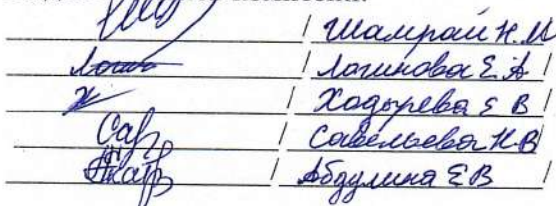 / Шамрай Н.М
/ Логинова Е.А /
/ Ходырева Е В /
/ Савельева Н.В /
/ Абдулина Е В /